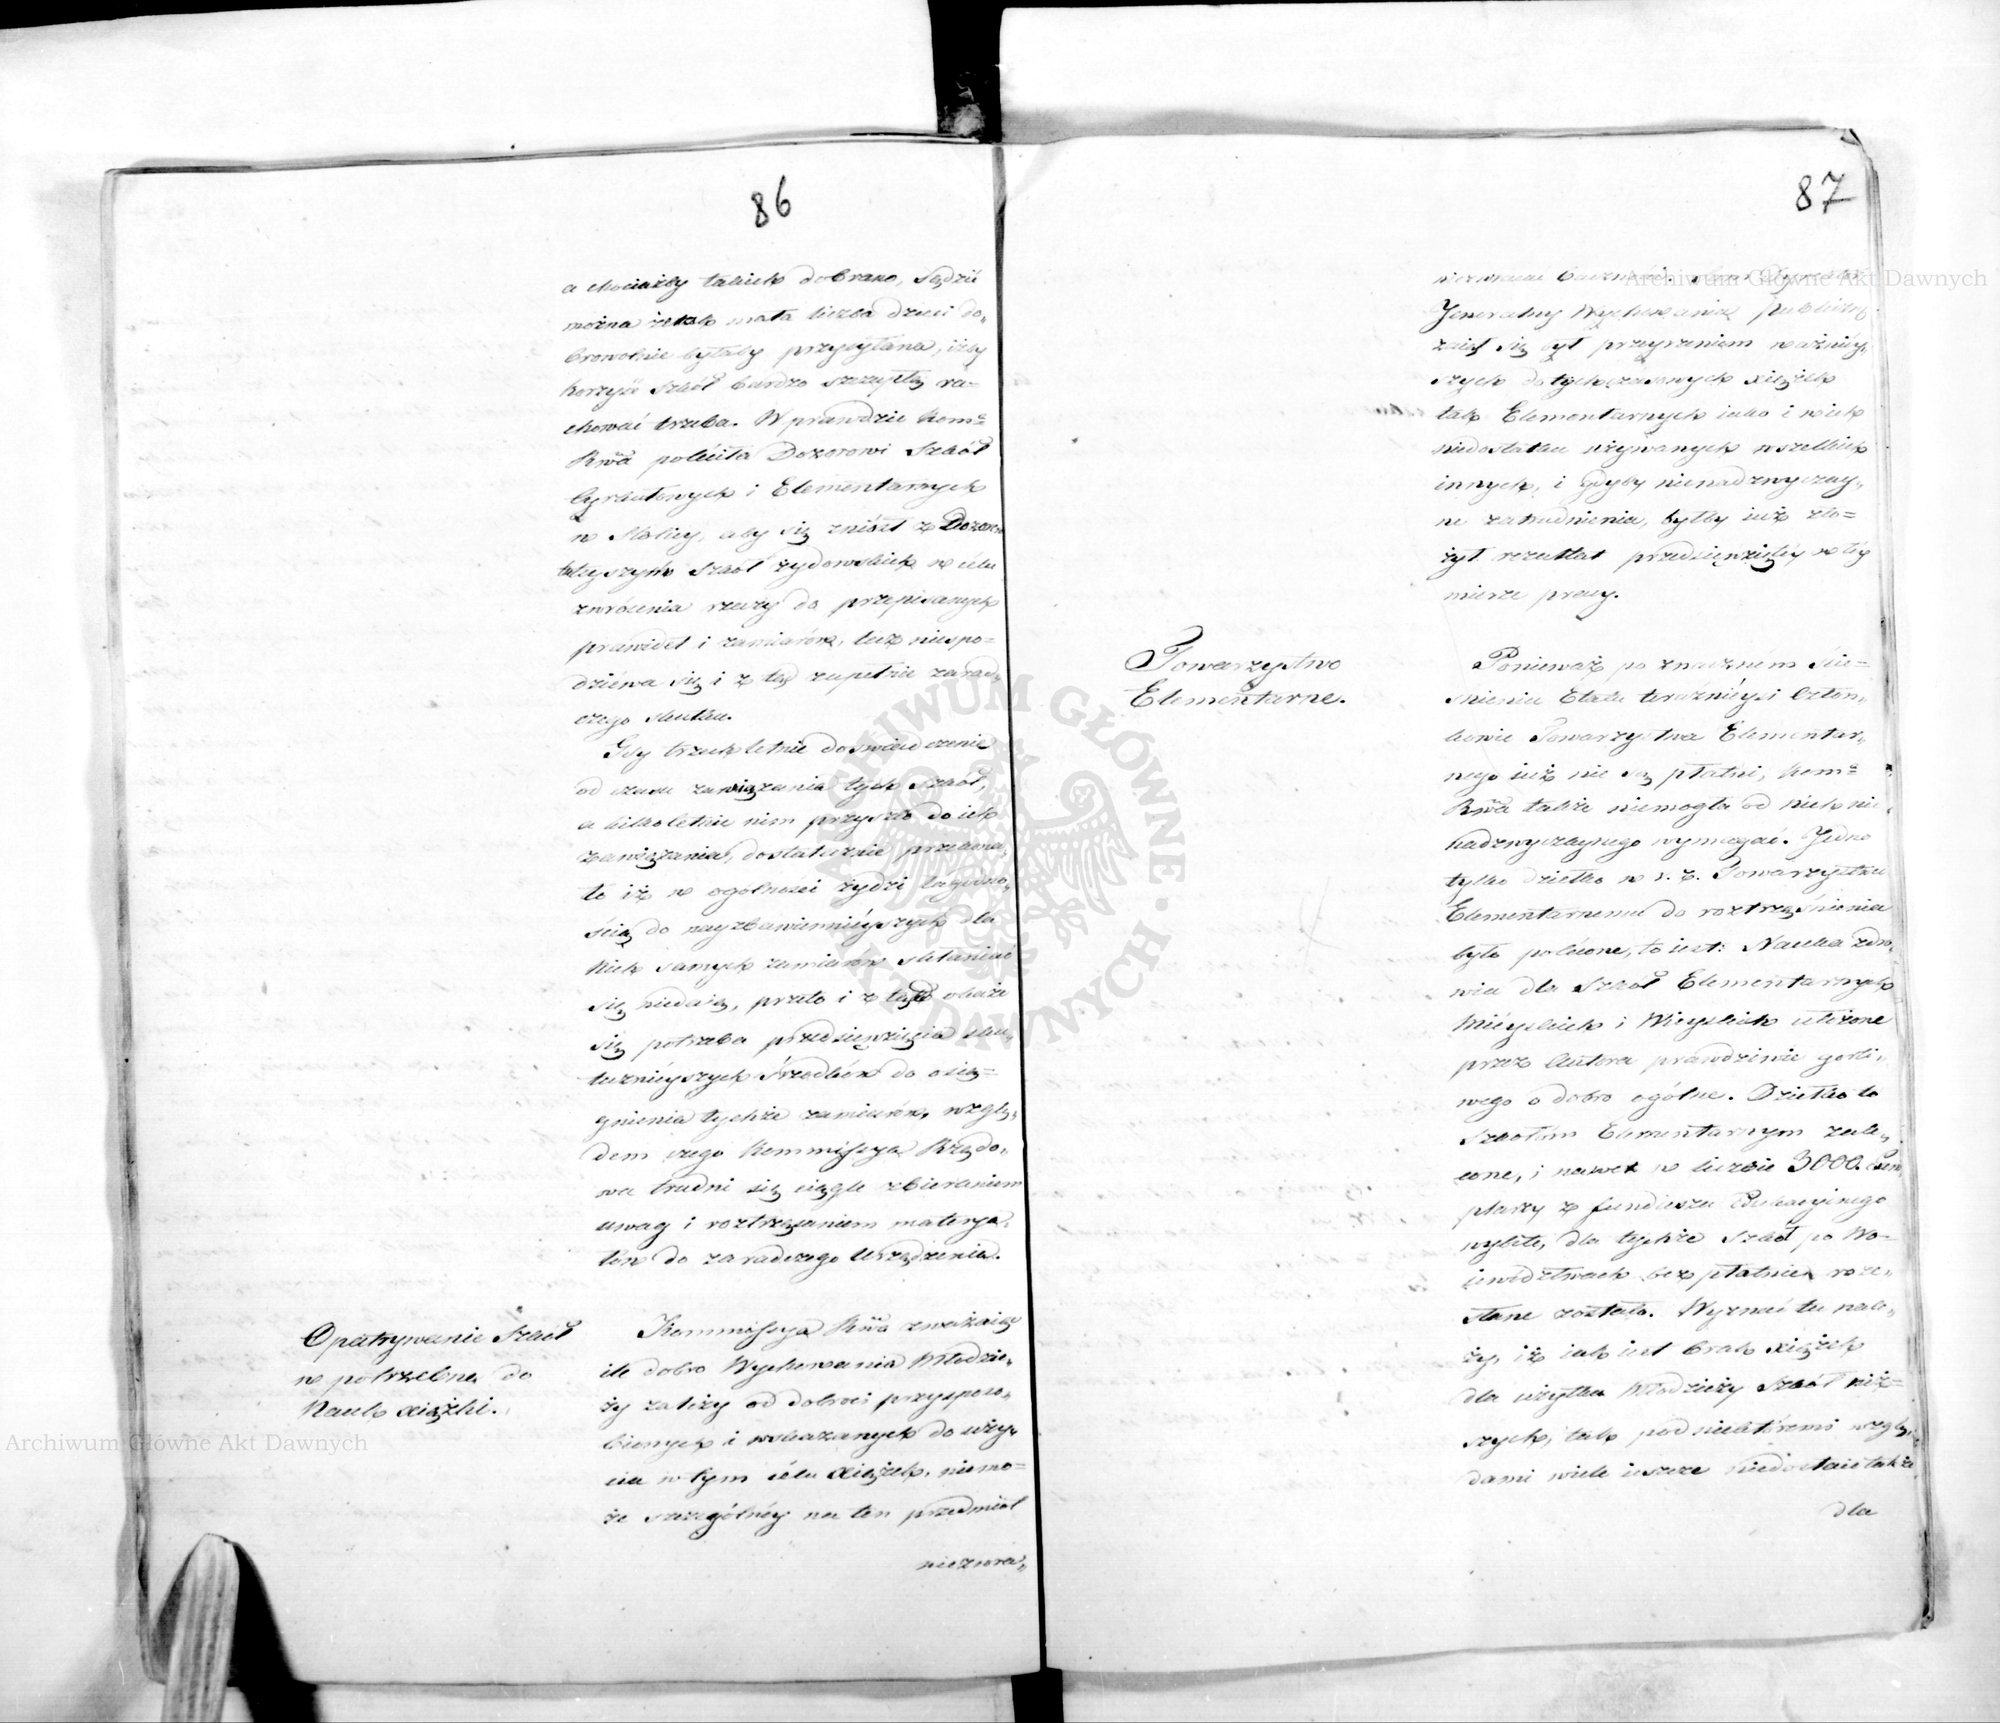 86
a chociażby takich dobrano, sądzić
można iż tak mała liczba dzieci do„
browolnie byłaby przysyłana, iżby
korzyść szkół bardzo szczupłą ra=
chować trzeba. W prawdzie Kom:ª
Rwa poleciła Dozorowi Szkół
Cyrkułowych i Elementarnych
w Stolicy, aby się zniósł z Dozorem
tuteyszym szkół żydowskich w celu
zwrócenia rzeczy do przepisanych
prawideł i zamiarów, lecz niespo=
dziéwa się i z tąd zupełnie zarad„
czego skutku.
Gdy trzechletnie doswiadczenie
od czasu zawiązania tych szkół,
a kilkoletnie nim przyszło do ich
zawiązania, dostatecznie przekona„
ło iż w ogólności żydzi łagodno„
ścią do nayzbawiennieyszych dla
nich samych zamiarów skłaniać
się niedaią, przeto i z tąd okaże
się potrzeba przedsięwzięcia sku„
tecznieyszych środków do osią=
gnienia tychże zamiarów, wzglę„
dem czego Kommissya Rządo„
wa trudni się ciągle zbieraniem
uwag i roztrząsaniem materya„
łów do zaradczego Urządzenia.
Opatrywanie Szkół
w potrzebne do
Nauk xiążki.
Kommissya Rwa zważaiąc
ile dobro Wychowania Młodzie„
ży zależy od dobroci przysposo„
bionych i wskazanych do uży„
cia w tym celu xiążek, niemo=
że szczególnéy na ten przedmiot
niezwra„
87
niezwracać baczności.
Jeneralny Wychowania publiczn.
zaiął się był przeyrzeniem ważniéy„
szych dotychczasowych xiążek
tak Elementarnych iako i w ich
niedostatku używanych wszelkich
innych, i gdyby nienadzwyczay„
ne zatrudnienia, byłby iuż zło=
żył rezultat przedsięwziętéy w téy
mierze pracy.
Towarzystwo
Elementarne.
Ponieważ po znaczném ście=
śnieniu Etatu teraźnieysi Człon„
kowie Towarzystwa Elementar„
nego iuż nie są płatni, Kom:ª
Rwa także niemogła od nich nic
nadzwyczaynego wymagać. Jedno
tylko dziełko w r. z. Towarzystwu
Elementarnemu do roztrząśnienia
było polécone, to iest: Nauka zdro„
wia dla Szkół Elementarnych
Mieyskich i Wieyskich ułożone
przez Autora prawdziwie gorli„
wego o dobro ogólne. Dziełko to
szkołom Elementarnym zale„
cone, i nawet w liczbie 3000. Exem
plarzy z funduszu Edukacyinego
wybite, dla tychże Szkół po Wo=
iewództwach bezpłatnie roze„
słane zostało. Wyznać tu nale„
ży, iż iak iest brak xiążek
dla użytku Młodzieży Szkół niż=
szych, tak pod niektóremi wzglę„
dami wiele ieszcze niedostaie także
dla
Archiwum Główne Akt Dawnych
Archiwum Główne Akt Dawnych
ARCHIWUM GŁÓWNE AKT DAWNYCH